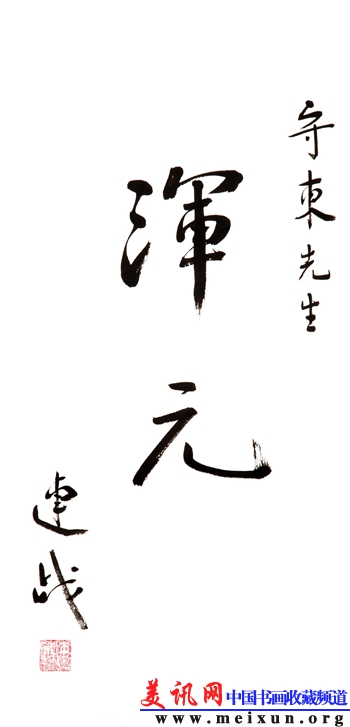 守東先生
渾元
連战
美讯网 中国书画收藏频道
www.meixun.org